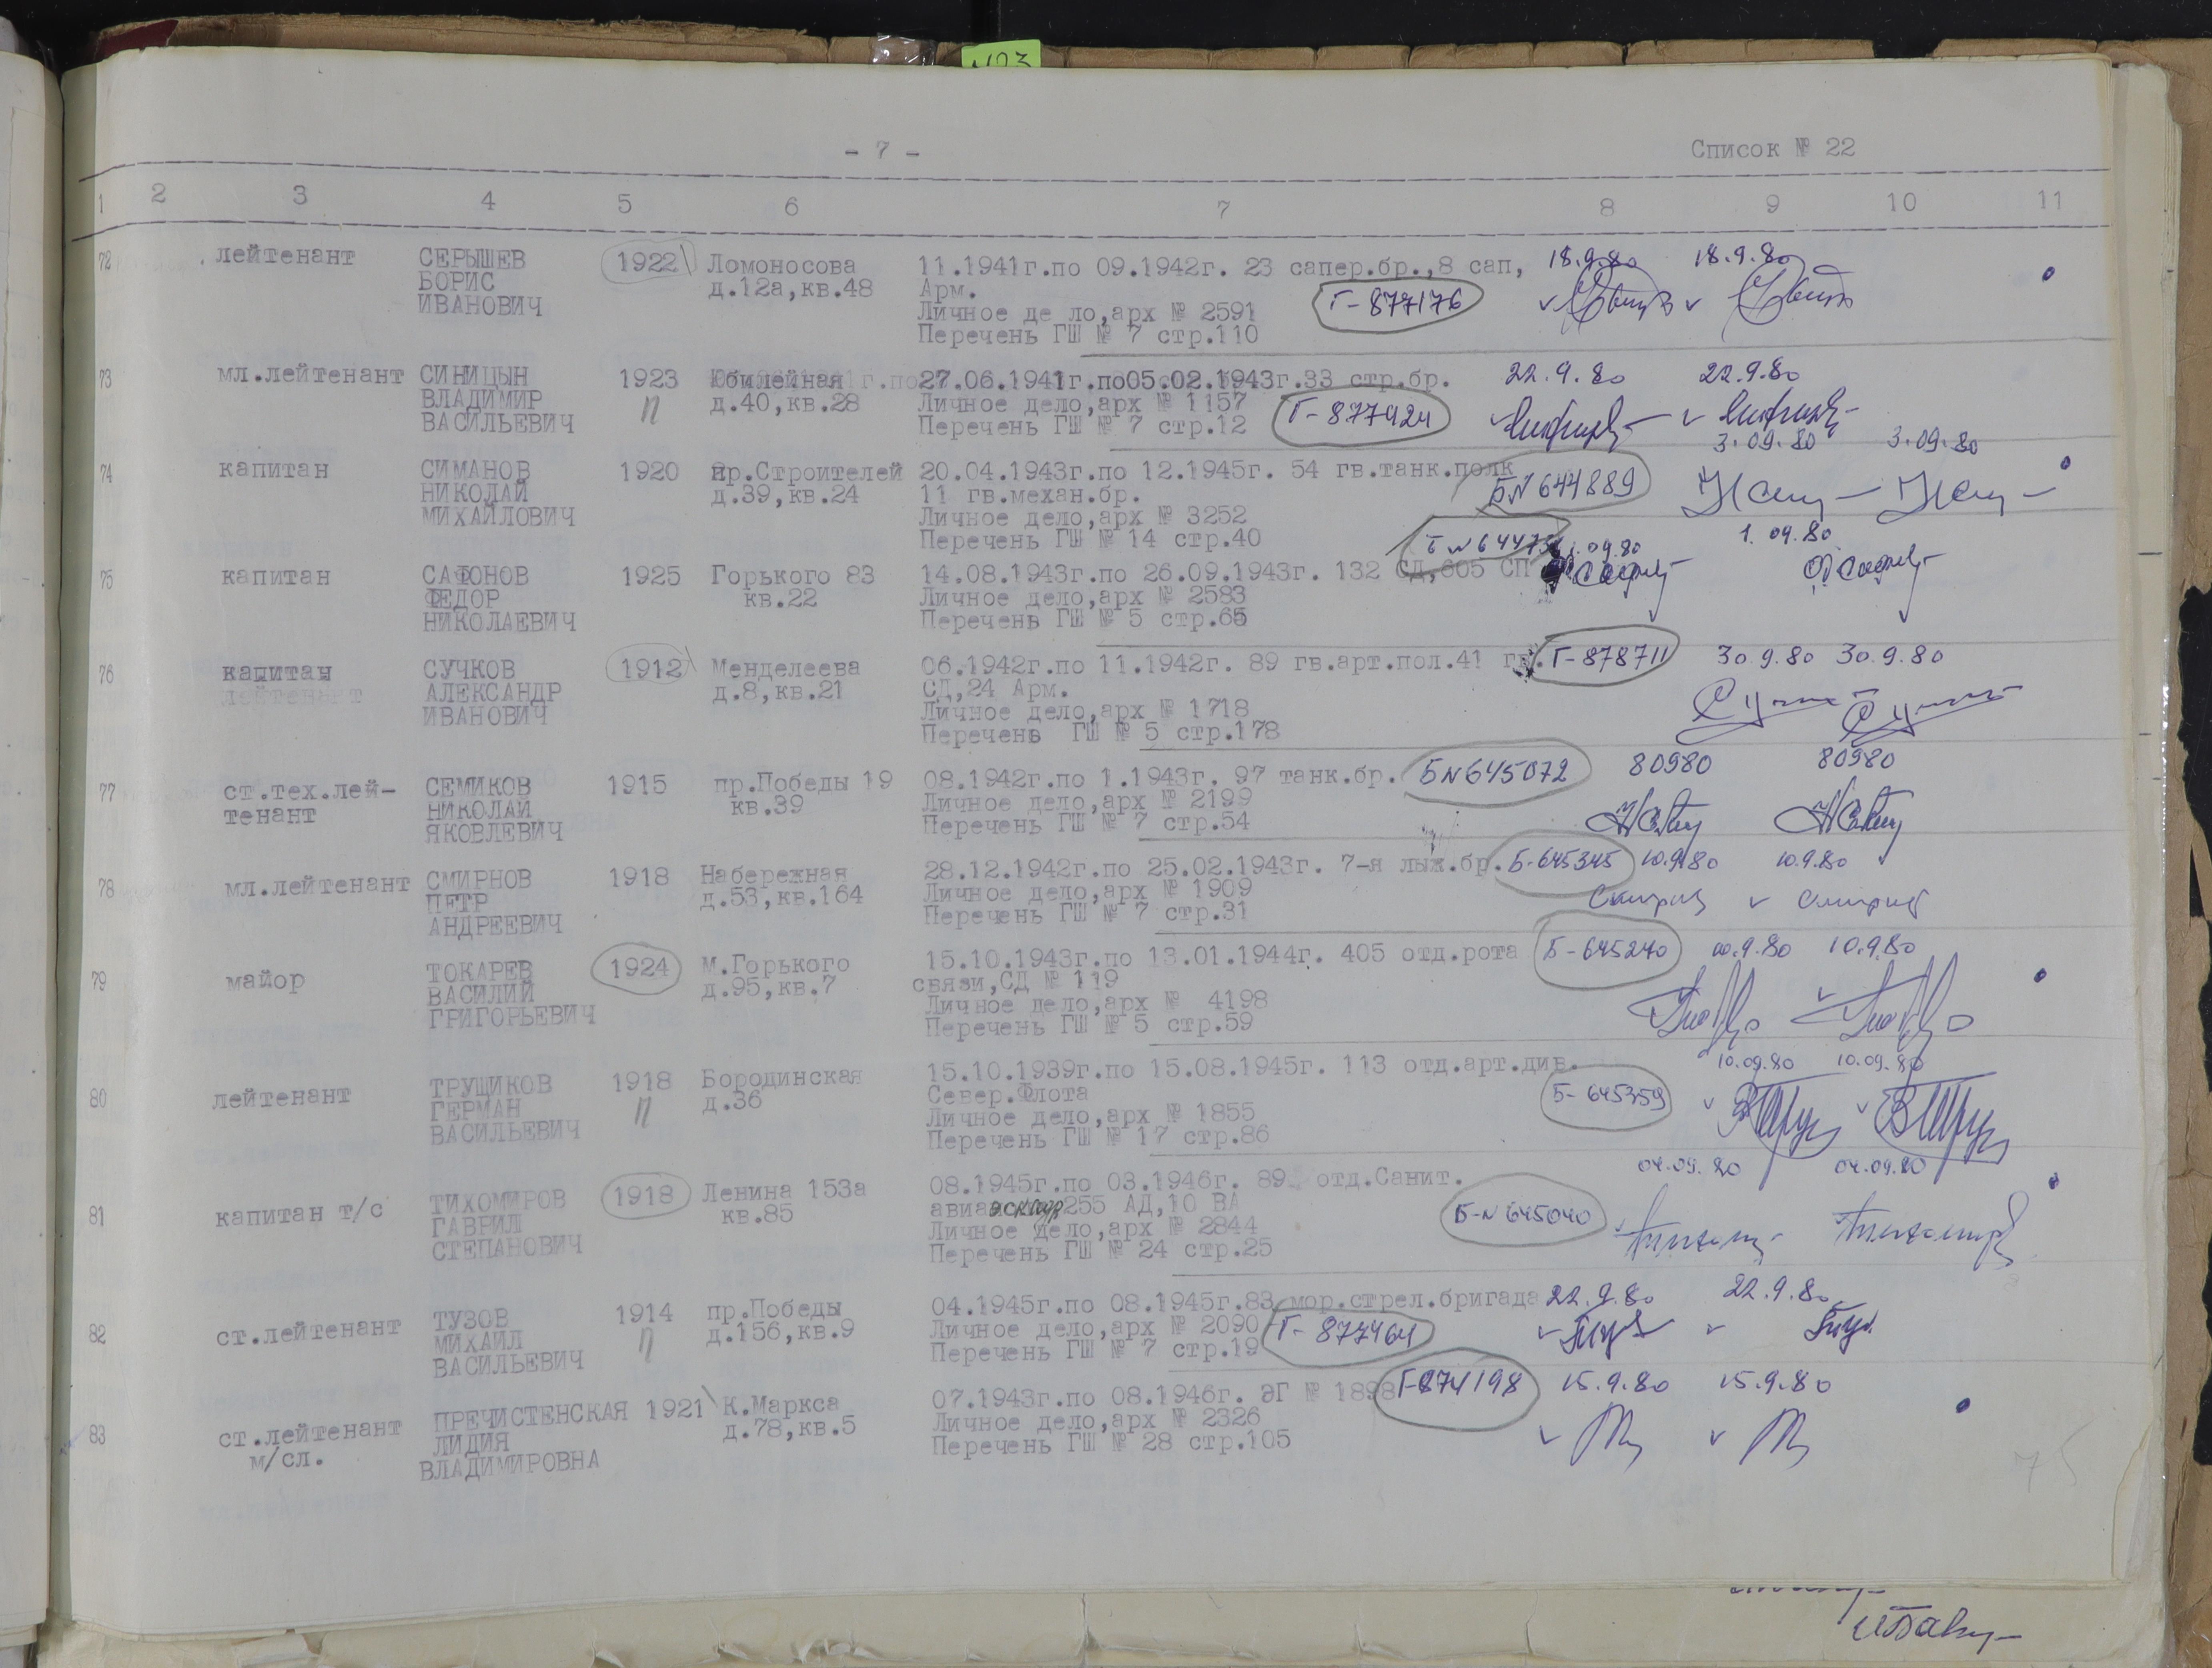 N23
- 7 -
Список № 22
1 2 3 4 5 6 7 8 9 10 11
72 лейтенант СЕРЫШЕВ 1922 Ломоносова 11.1941г.по 09.1942г. 23 сапер.бр.,8 сап, 18.9.80 18.9.80
БОРИС д.12а,кв.48 Арм.
ИВАНОВИЧ Личное де ло,арх № 2591 Г-877176
Перечень ГШ № 7 стр.110
73 мл.лейтенант СИНИЦЫН 1923 Юбилейная 27.06.1941г.по05.02.1943г.33 стр.бр. 22.9.80 22.9.80
ВЛАДИМИР П д.40,кв.28 Личное дело,арх № 1157 Г-877924
ВАСИЛЬЕВИЧ Перечень ГШ № 7 стр.12
3.09.80 3.09.80
74 капитан СИМАНОВ 1920 пр.Строителей 20.04.1943г.по 12.1945г. 54 гв.танк.полк
НИКОЛАЙ д.39,кв.24 11 гв.механ.бр. БN 644889
МИХАЙЛОВИЧ Личное дело,арх № 3252
Перечень ГШ № 14 стр.40 1.09.80 1.09.80
75 капитан САФОНОВ 1925 Горького 83 14.08.1943г.по 26.09.1943г. 132 СД,605 СП
ФЕДОР кв.22 Личное дело,арх № 2583
НИКОЛАЕВИЧ Перечень ГШ № 5 стр.65
76 капитан СУЧКОВ 1912 Менделеева 06.1942г.по 11.1942г. 89 гв.арт.пол.41 гв. Г-878711 30.9.80 30.9.80
лейтенант АЛЕКСАНДР д.8,кв.21 СД,24 Арм.
ИВАНОВИЧ Личное дело,арх № 1718
Перечень ГШ № 5 стр.178
77 ст.тех.лей- СЕМИКОВ 1915 пр.Победы 19 08.1942г.по 1.1943г. 97 танк.бр. БN 645072 80980 80980
тенант НИКОЛАЙ кв.39 Личное дело,арх № 2199
ЯКОВЛЕВИЧ Перечень ГШ № 7 стр.54
78 мл.лейтенант СМИРНОВ 1918 Набережная 28.12.1942г.по 25.02.1943г. 7-я лыж.бр. Б-645345 10.9.80 10.9.80
ПЕТР д.53,кв.164 Личное дело,арх № 1909
АНДРЕЕВИЧ Перечень ГШ № 7 стр.31
79 майор ТОКАРЕВ 1924 М.Горького 15.10.1943г.по 13.01.1944г. 405 отд.рота Б-645240 10.9.80 10.9.80
ВАСИЛИЙ д.95,кв.7 связи,СД № 119
ГРИГОРЬЕВИЧ Личное дело,арх № 4198
Перечень ГШ № 5 стр.59
80 лейтенант ТРУЩИКОВ 1918 Бородинская 15.10.1939г.по 15.08.1945г. 113 отд.арт.див. 10.09.80 10.09.80
ГЕРМАН П д.36 Север.Флота Б-645359
ВАСИЛЬЕВИЧ Личное дело,арх № 1855
Перечень ГШ № 17 стр.86
81 капитан т/с ТИХОМИРОВ 1918 Ленина 153а 08.1945г.по 03.1946г. 89 отд.Санит. 04.09.80 04.09.80
ГАВРИЛ кв.85 авиа 255 АД,10 ВА Б-N 645040
СТЕПАНОВИЧ Личное дело,арх № 2844
Перечень ГШ № 24 стр.25
82 ст.лейтенант ТУЗОВ 1914 пр.Победы 04.1945г.по 08.1945г.83 мор.стрел.бригада 22.9.80 22.9.80
МИХАИЛ П д.156,кв.9 Личное дело,арх № 2090 Г-877464
ВАСИЛЬЕВИЧ Перечень ГШ № 7 стр.19
83 ст.лейтенант ПРЕЧИСТЕНСКАЯ 1921 К.Маркса 07.1943г.по 08.1946г. ЭГ № 1898 Г-874198 15.9.80 15.9.80
м/сл. ЛИДИЯ д.78,кв.5 Личное дело,арх № 2326
ВЛАДИМИРОВНА Перечень ГШ № 28 стр.105
75